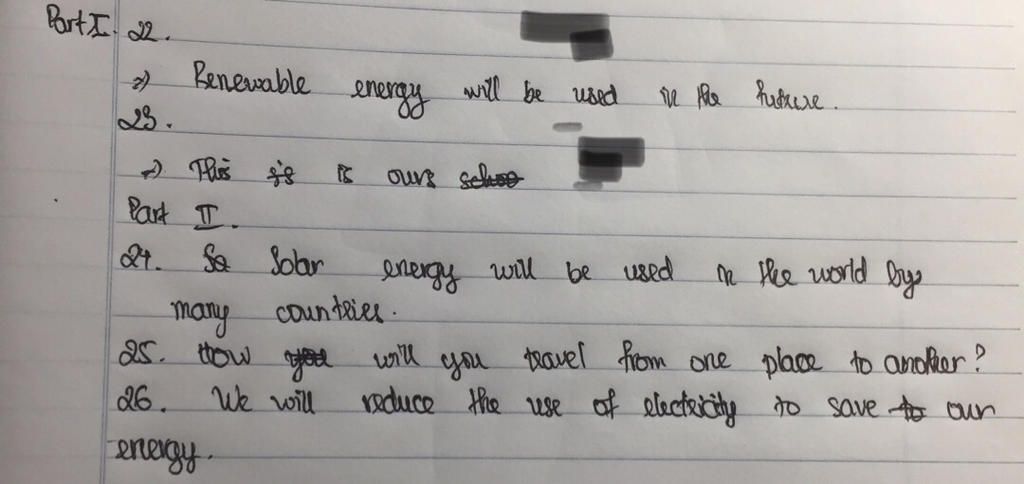 Part I. 22.
=> Renewable energy will be used in the future.
23.
=> This is is ours schoo
Part II.
24. So Solar energy will be used in the world by
many countries.
25. How you will you travel from one place to another?
26. We will reduce the use of electricity to save to our
energy.